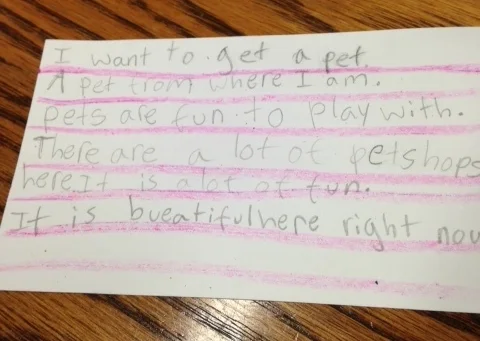 I want to get a pet.
A pet from where I am.
pets are fun to play with.
There are a lot of petshops
here. It is a lot of fun.
It is bueatiful here right now